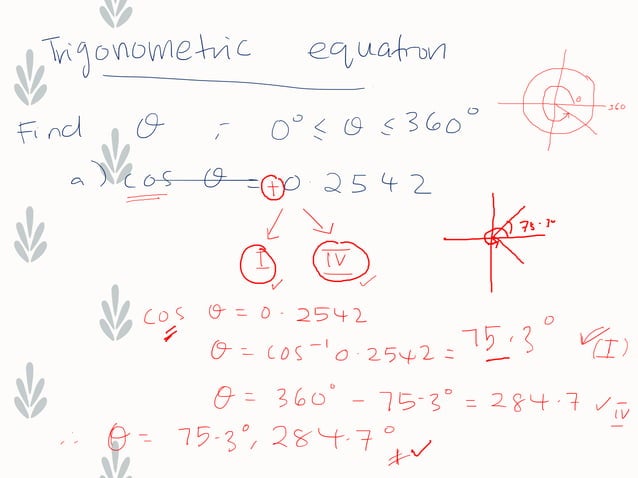 Trigonometric equation
Find θ ; 0° ≤ θ ≤ 360°
0
360
a) cos θ = + 0.2542
I IV
75.3°
cos θ = 0.2542
θ = cos⁻¹ 0.2542 = 75.3° (I)
θ = 360° - 75.3° = 284.7 IV
∴ θ = 75.3°, 284.7°